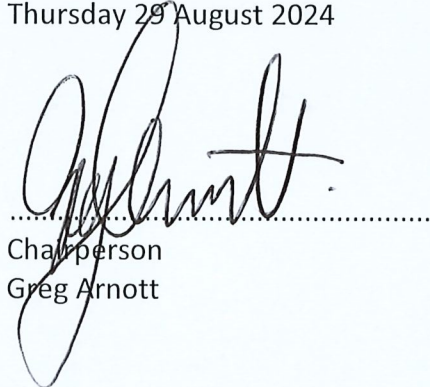 Thursday 29 August 2024
Chairperson
Greg Arnott